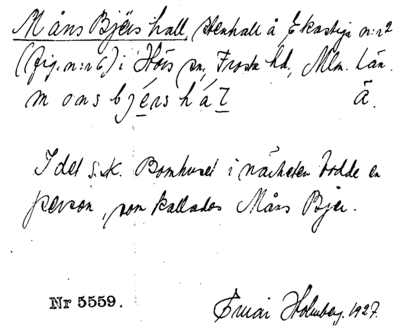 Måns Bjérs hall, stenhall å Ekastiga n:r 2
(fig. n:r 6) i Hörs sn, Frosta hd, Mlm. Län.
m ons bjérs hál Ä.
I det s.k. Bomhuset i närheten bodde en
person, som kallades Måns Bjer.
Nr 5559. Holmberg. 1927.